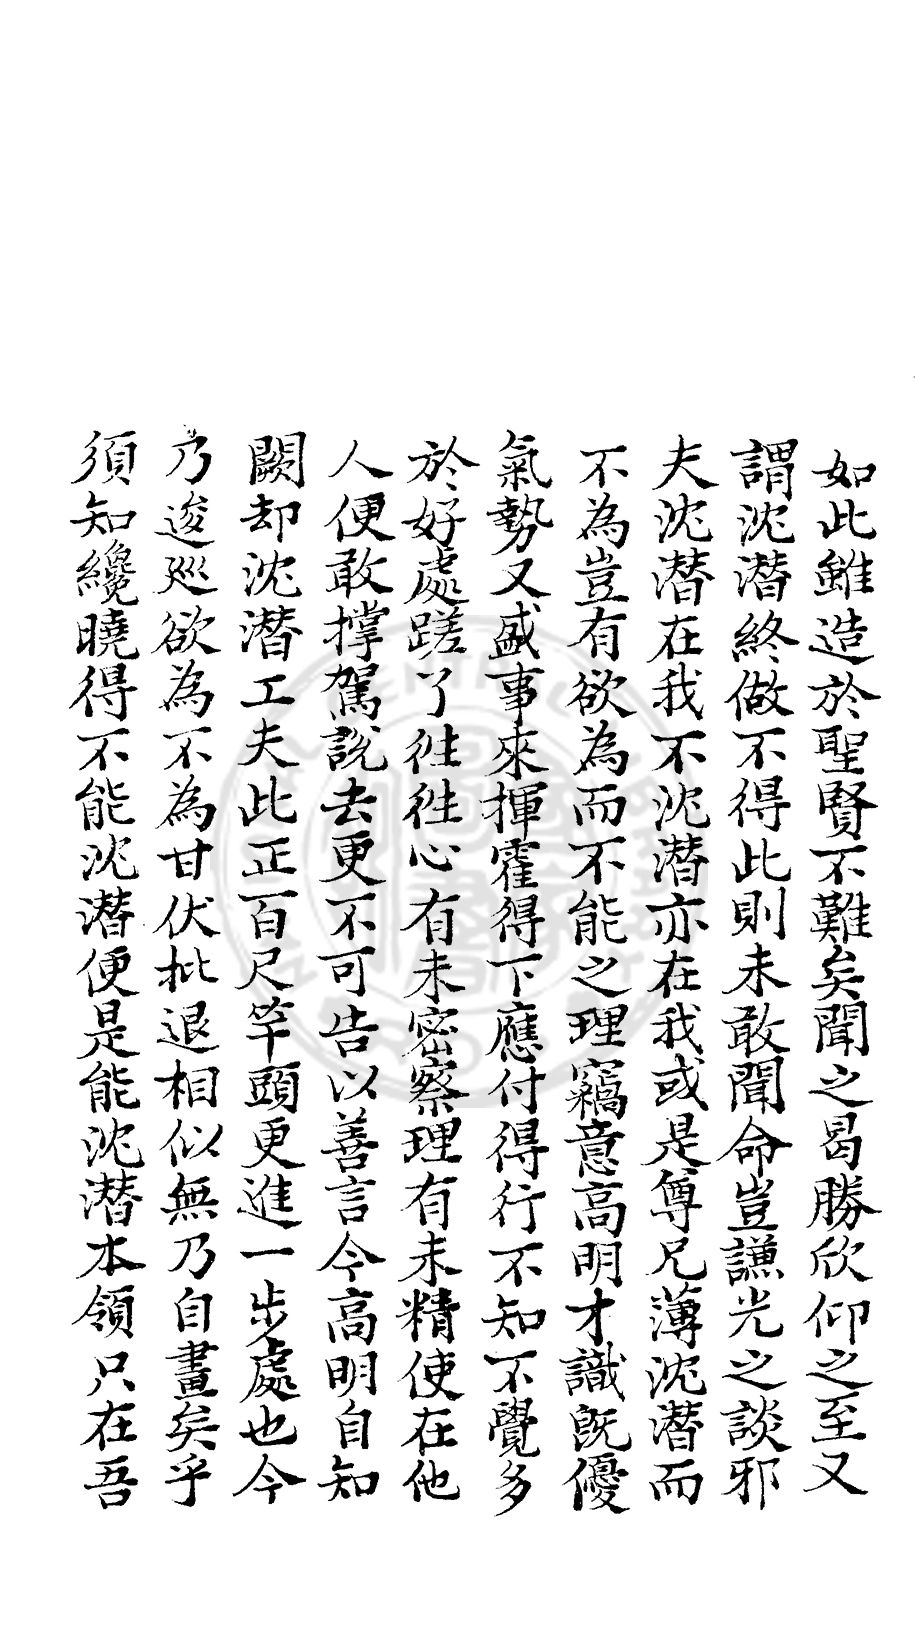 如此雖造於聖賢不難矣聞之曷勝欣仰之至又
謂沈潛終做不得此則未敢聞命豈謙光之談邪
夫沈潛在我不沈潛亦在我或是尊兄薄沈潛而
不為豈有欲為而不能之理竊意高明才識既優
氣勢又盛事來揮霍得下應付得行不知不覺多
於好處蹉了往往心有未密察理有未精使在他
人便敢撑駕說去更不可告以善言今高明自知
闕却沈潛工夫此正百尺竿頭更進一步處也今
乃逡巡欲為不為甘伏批退相似無乃自畫矣乎
須知纔曉得不能沈潛便是能沈潛本領只在吾